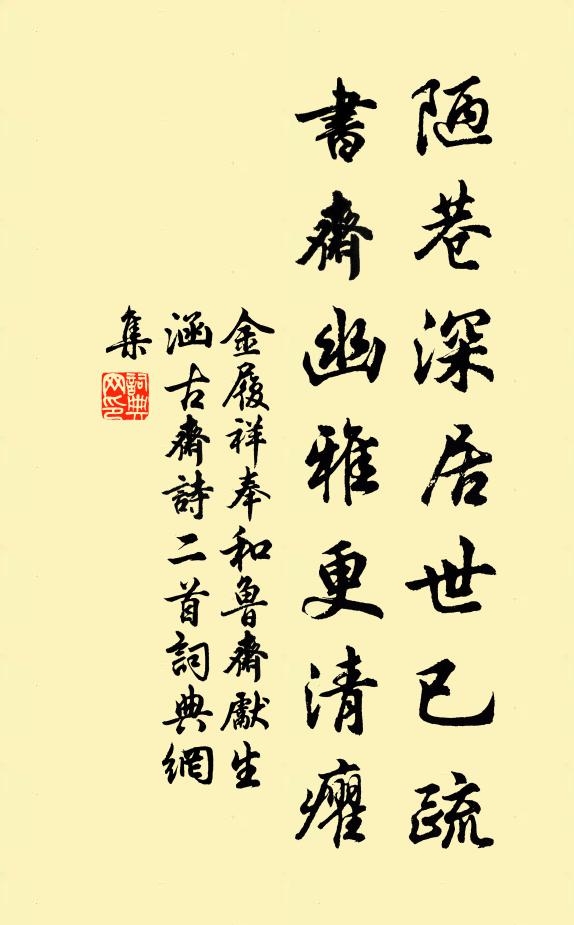 陋巷深居世已疏
書齋幽雅更清癯
金履祥奉和魯齋獻生
涵古齋詩二首詞典網
集
詞典网印